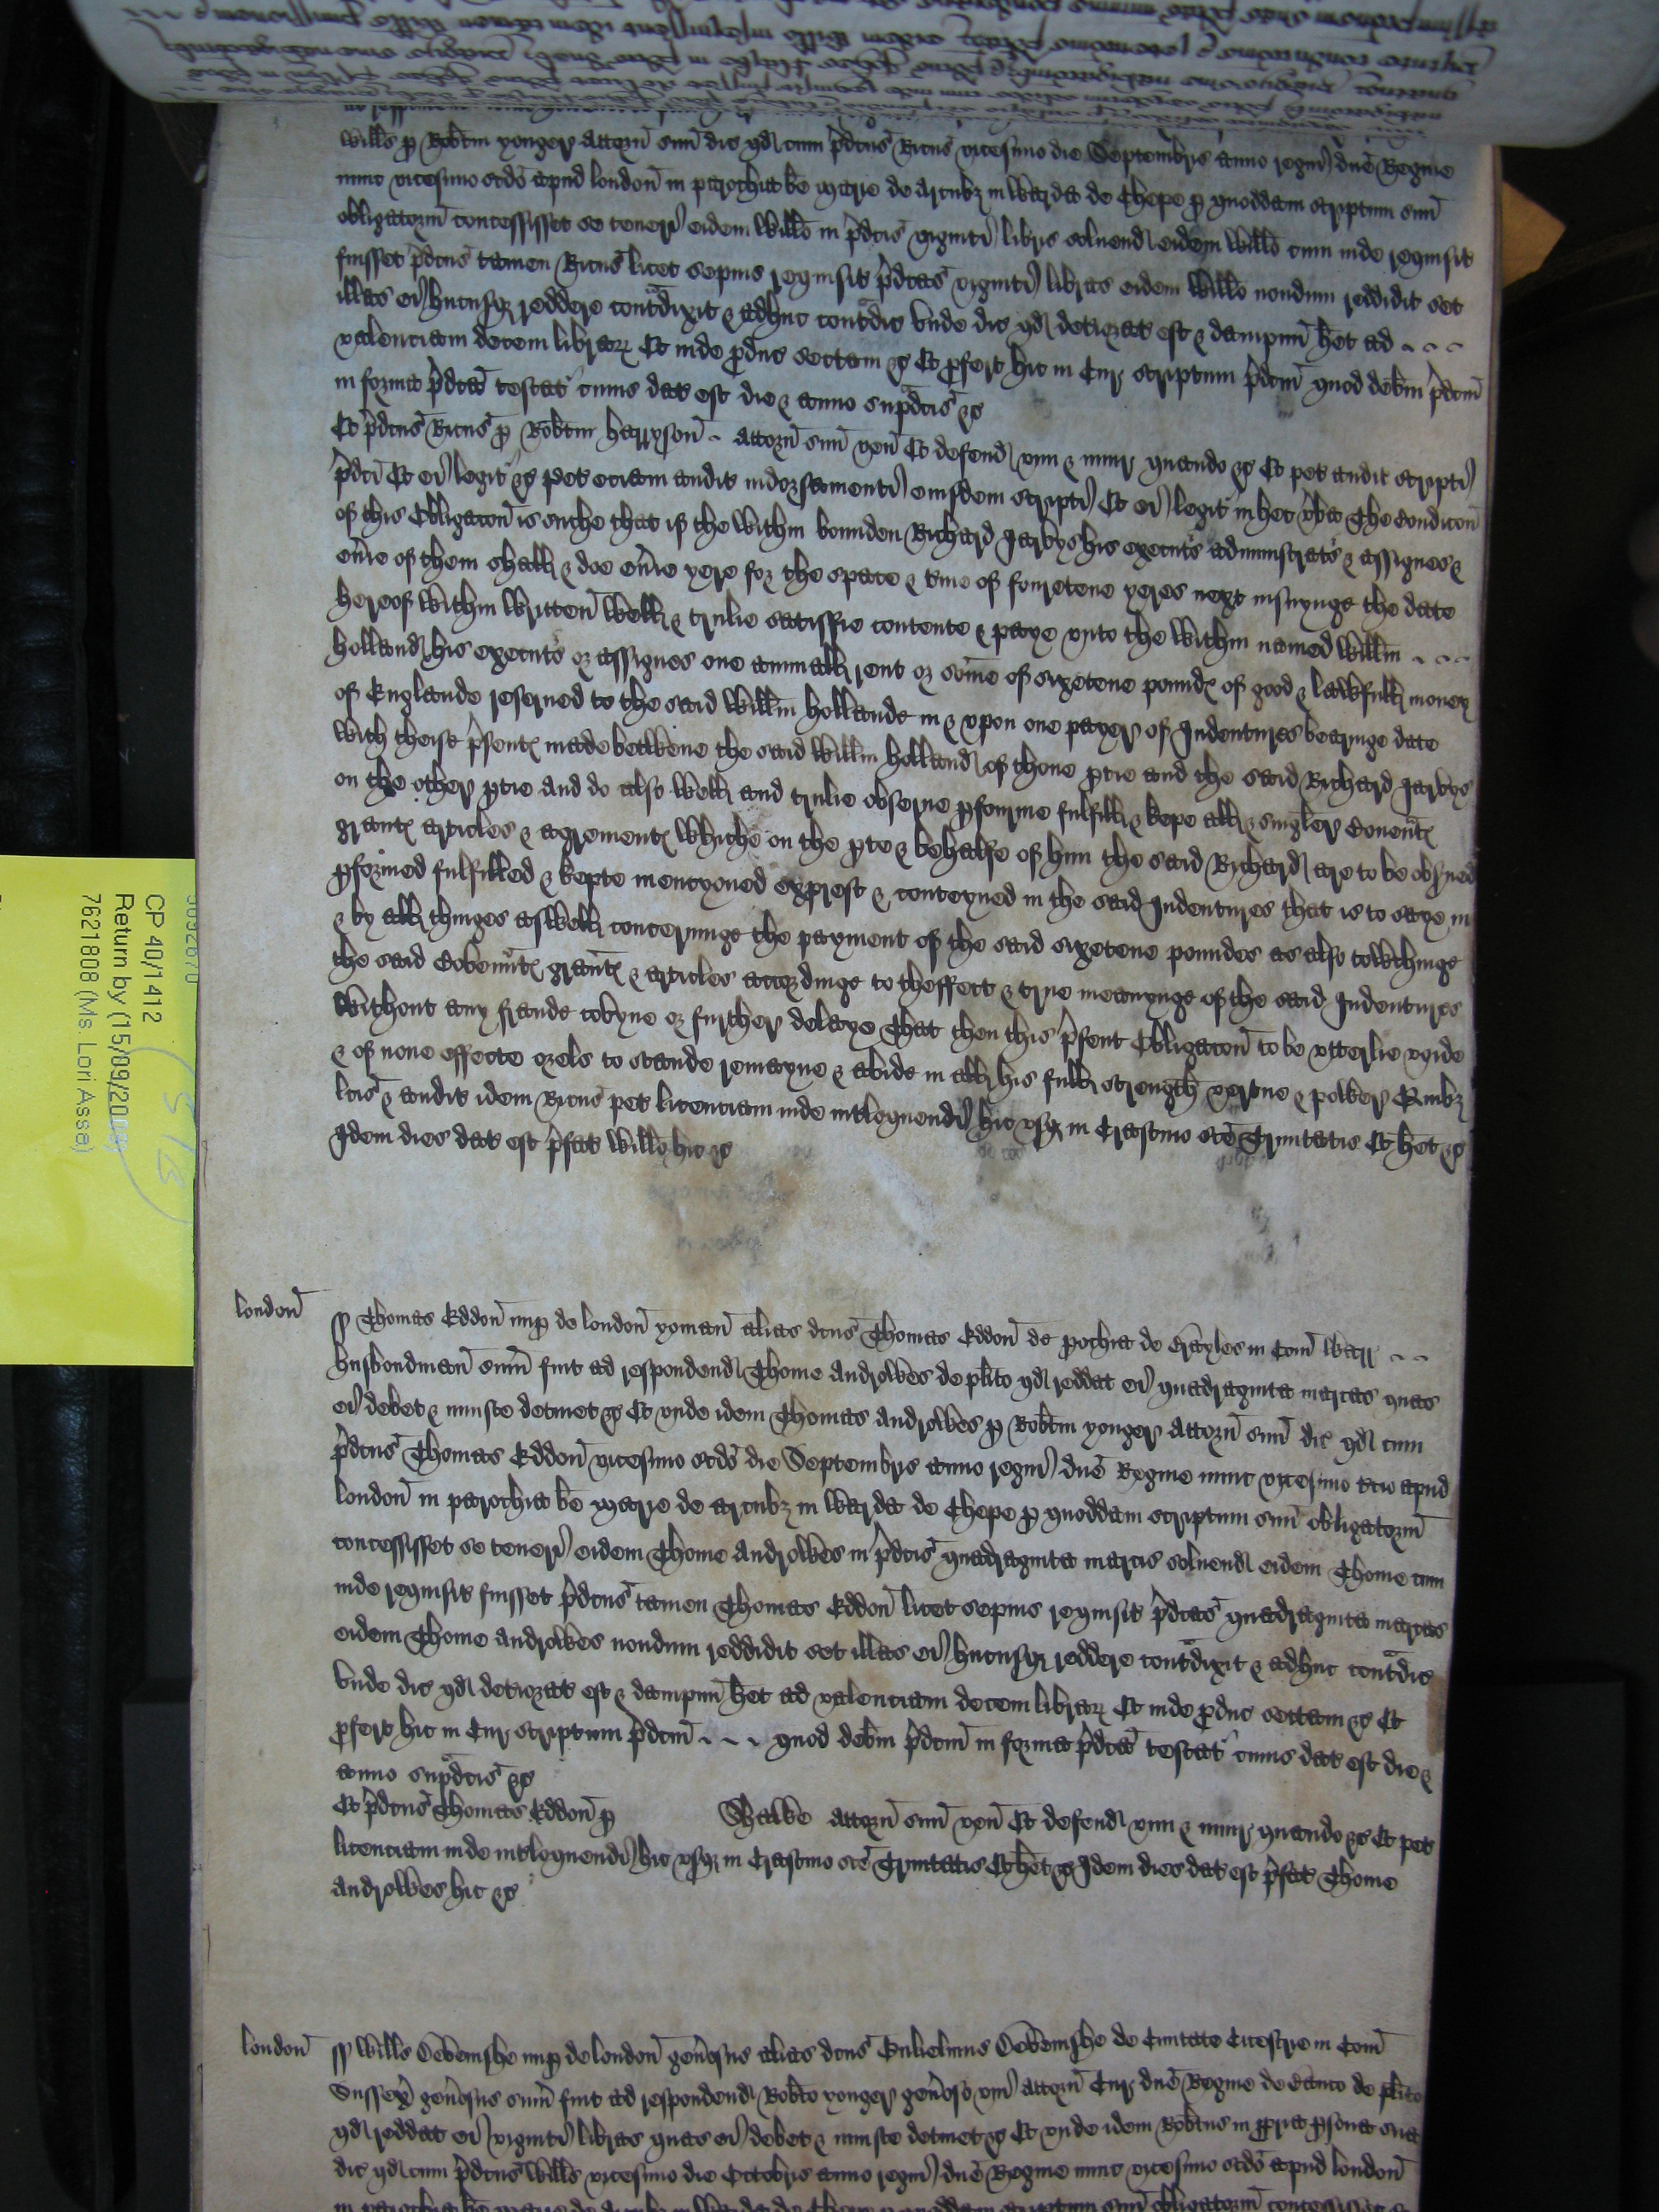 Willms p Robtm yonger attorn suu dic qd cum pdcus Ricus vicesimo die Septembris anno regni dne Regine
nunc vicesimo scdo apud london in parochia be Marie de Arcubz in Warda de Chepe p quoddam scriptum suu
obligatorm concessisset se teneri eidem Willo in pdcis viginti libris solvend eidem Willo cum inde requisit
fuisset pdcus tamen Ricus licet sepius requisit pdcas viginti libras eidem Willo nondum reddidit set
illas ei hucusq reddere contdixit & adhuc contdic Unde dic qd deteriorat est & dampnu het ad
valenciam decem librar Et inde pduc sectam &c Et pfert hic in Cur scriptum pdcm quod debm pdcm
in forma pdca testat cuius dat est die & anno supdcis &c
Et pdcus Ricus p Robtm harryson attorn suu ven Et defend vim & iniur quando &c Et pet audit scripti
pdci Et ei legit &c pet eciam audit indorsamenti eiusdem scripti Et ei legit in hec vba The Condicon
of this Obligacon is suche that if the within bounden Richard Jarvys his executs administrats & assignes &
evie of them shall & doe evie yere for the space & tme of fouretene yeres next insuynge the date
hereof within written well & trulie satisfie contente & paye unto the within named Willm
holland his executs or assignes one annuall rent or some of sixetene pounds of good & lawfull money
of Englande reserved to the said Willm hollande in & upon one payer of Indentures bearinge date
with theise psents made betwene the said Willm holland of thone ptie and the said Richard Jarvys
on the other ptie and do also well and trulie observe pfourme fulfill & kepe all & singler Covenuts
graunts articles & agrements whiche on the pte & behalfe of him the said Rychard are to be obsved
pformed fulfilled & kepte mencyoned exprest & conteyned in the said Indentures that is to saye in
& by all thinges aswell concerninge the payment of the said sixetene poundes as also towchinge
the said Covenuts graunts & articles accordinge to theffect & true meanynge of the said Indentures
without any fraude covyne or further delaye That then this psent Obligacon to be utterlie voide
& of none effecte orels to stande remayne & abide in all his full strength vertue & power Quibz
lcis & audit idem Ricus pet licenciam inde intloquendi hic usq in Crastino sce Trinitatis Et het &c
Idem dies dat est pfat Willo hic &c
london
ss Thomas Eddon nup de london yoman alias dcus Thomas Eddon de pochia de in Com Warr
husbondman sum fuit ad respondend Thome Androwes de plito qd reddat ei quadraginta marcas quas
ei debet & iniuste detinet &c Et unde idem Thomas Androwes p Robtm yonger attorn suu dic qd cum
pdcus Thomas Eddon vicesimo scdo die Septembris anno regni dne Regine nunc vicesimo apud
london in parochia be Marie de Arcubz in Warda de Chepe p quoddam scriptum suu obligatorm
concessisset se teneri eidem Thome Androwes in pdcis quadraginta marcis solvend eidem Thome cum
inde requisit fuisset pdcus tamen Thomas Eddon licet sepius requisit pdcas quadraginta marcas
eidem Thome Androwes nondum reddidit set illas ei hucusq reddere contdixit & adhuc contdic
Unde dic qd deteriorat est & dampnu het ad valenciam decem librar Et inde pduc sectam &c Et
pfert hic in Cur scriptum pdcm quod debm pdcm in forma pdca testat cuius dat est die &
anno supdcis &c
Et pdcus Thomas Eddon p Shawe attorn suu ven Et defend vim & iniur quando &c Et pet
licenciam inde intloquendi hic usq in Crastino sce Trinitatis Et het &c Idem dies dat est pfat Thome
Androwes hic &c
london
ss Willms nup de london genosus alias dcus Gulielmus de Civitate Cicestrie in Com
Sussex genosus sum fuit ad respondend Robto yonger genoso uni attorn Cur dne Regine de Banco de plito
qd reddat ei viginti libras quas ei debet & iniuste detinet &c Et unde idem Robtus in ppria psona sua
dic qd cum pdcus Willms vicesimo die Octobris anno regni dne Regine nunc vicesimo scdo apud london
CP 40/1412
Return by (15/09/2009)
7621808 (Ms. Lori Assa)